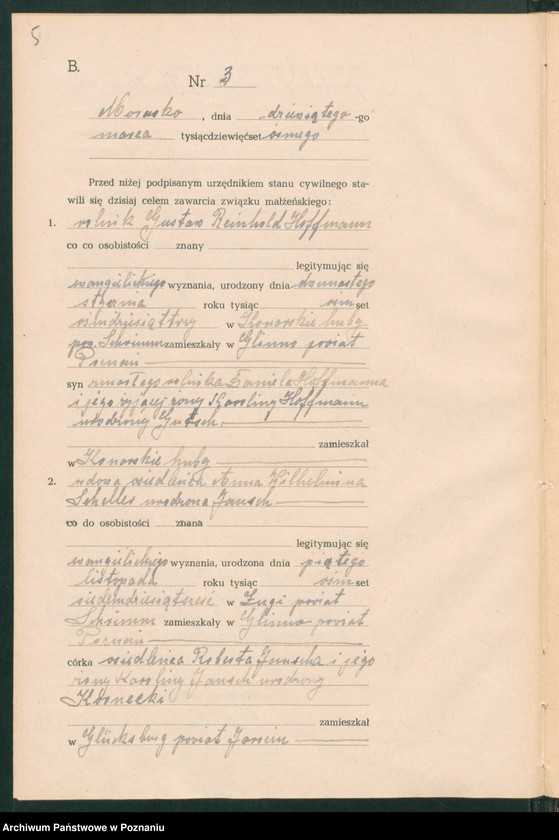 5
B.
Nr 3
Morasko, dnia dziesiątego -go
marca tysiącdziewięćset ósmego
Przed niżej podpisanym urzędnikiem stanu cywilnego sta-
wili się dzisiaj celem zawarcia związku małżeńskiego:
1. rolnik Gustav Reinhold Hoffmann
co co osobistości znany
legitymując się
ewangielickiego wyznania, urodzony dnia
roku tysiąc ośm set
w Konarskie huby
zamieszkały w Glinno powiat
Poznań
syn zmarłego rolnika Daniela Hoffmanna
i jego żyjącej żony Karoliny Hoffmann
urodzonej
zamieszkał
w Konarskie huby
2. wdowa osiedleńca Anna Wilhelmina
Schelles urodzona Jansch
co do osobistości znana
legitymując się
ewangielickiego wyznania, urodzona dnia piątego
listopada roku tysiąc ośm set
siedemdziesiątsześć w powiat
Schrimm zamieszkały w Glinno powiat
Poznań
córka osiedleńca Roberta Janscha i jego
żony Karoliny Jansch urodzonej
zamieszkał
w Glücksburg powiat
Archiwum Państwowe w Poznaniu